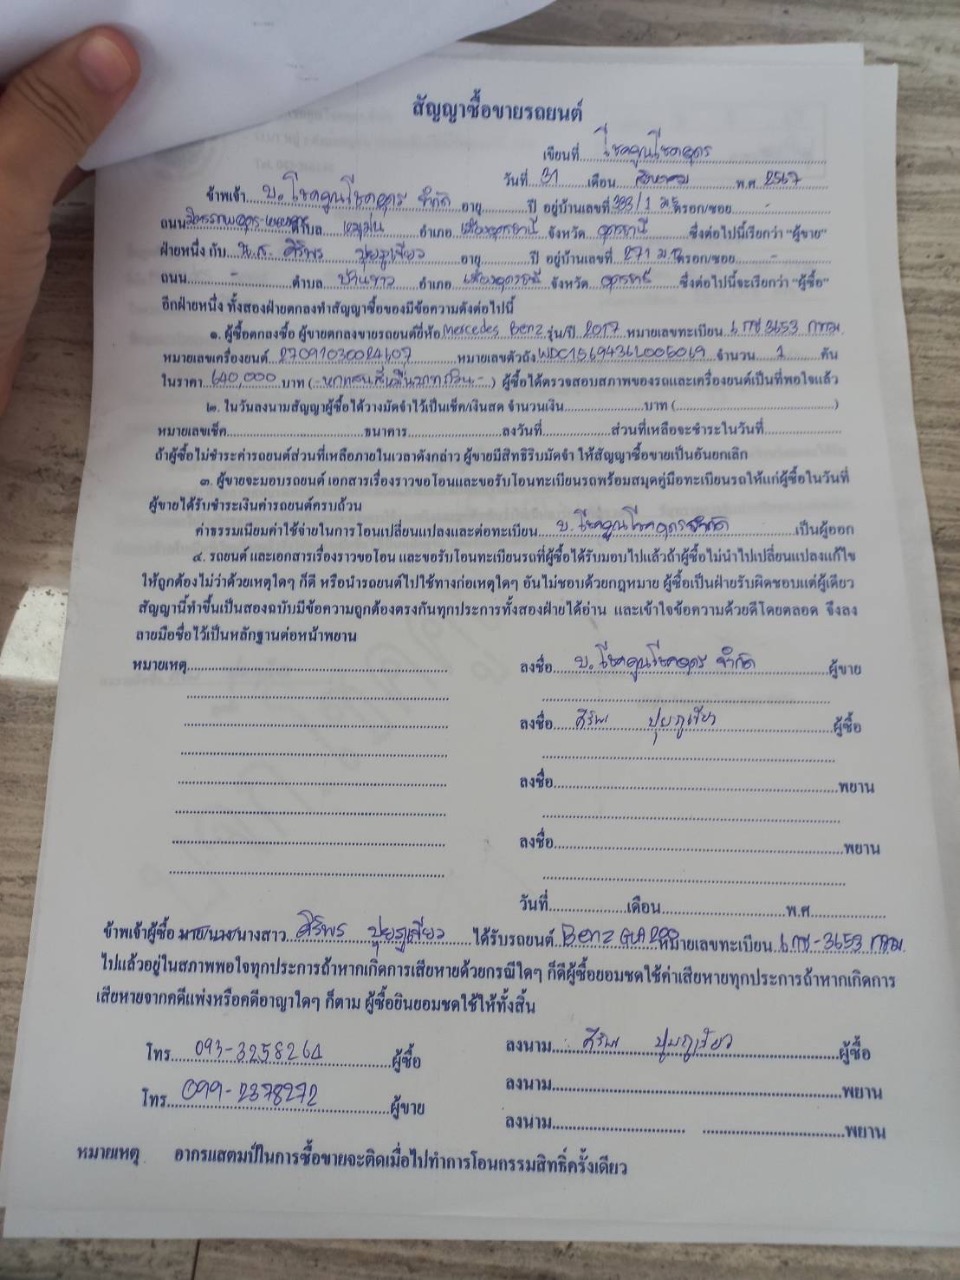 สัญญาซื้อขายรถยนต์
เขียนที่ โชคคูณโชคอุดร
วันที่ 31 เดือน สิงหาคม พ.ศ 2567
ข้าพเจ้า บ. โชคคูณโชคอุดร จำกัด อายุ ปี อยู่บ้านเลขที่ 333/1 ม.5 ตรอก/ซอย -
ถนน ตำบล หมูม่น อำเภอ เมืองอุดรธานี จังหวัด อุดรธานี ซึ่งต่อไปนี้เรียกว่า "ผู้ขาย"
ฝ่ายหนึ่ง กับ น.ส. ศิริพร อายุ ปี อยู่บ้านเลขที่ 271 ตรอก/ซอย -
ถนน - ตำบล บ้านขาว อำเภอ เมืองอุดรธานี จังหวัด อุดรธานี ซึ่งต่อไปนี้จะเรียกว่า "ผู้ซื้อ"
อีกฝ่ายหนึ่ง ทั้งสองฝ่ายตกลงทำสัญญาซื้อของมีข้อความดังต่อไปนี้
๑. ผู้ซื้อตกลงซื้อ ผู้ขายตกลงขายรถยนต์ยี่ห้อ Mercedes Benz รุ่น/ปี 2017 หมายเลขทะเบียน 3653 กทม.
หมายเลขเครื่องยนต์ 27091030024607 หมายเลขตัวถัง จำนวน 1 คัน
ในราคา 640,000 บาท (-หกแสนสี่หมื่นบาทถ้วน-) ผู้ซื้อได้ตรวจสอบสภาพของรถและเครื่องยนต์เป็นที่พอใจแล้ว
๒. ในวันลงนามสัญญาผู้ซื้อได้วางมัดจำไว้เป็นเช็ค/เงินสด จำนวนเงิน บาท ( )
หมายเลขเช็ค ธนาคาร ลงวันที่ ส่วนที่เหลือจะชำระในวันที่
ถ้าผู้ซื้อไม่ชำระค่ารถยนต์ส่วนที่เหลือภายในเวลาดังกล่าว ผู้ขายมีสิทธิริบมัดจำ ให้สัญญาซื้อขายเป็นอันยกเลิก
๓. ผู้ขายจะมอบรถยนต์ เอกสารเรื่องราวขอโอนและขอรับโอนทะเบียนรถพร้อมสมุดคู่มือทะเบียนรถให้แก่ผู้ซื้อในวันที่
ผู้ขายได้รับชำระเงินค่ารถยนต์ครบถ้วน
ค่าธรรมเนียมค่าใช้จ่ายในการโอนเปลี่ยนแปลงและต่อทะเบียน บ. โชคคูณโชคอุดรจำกัด เป็นผู้ออก
๔. รถยนต์ และเอกสารเรื่องราวขอโอน และขอรับโอนทะเบียนรถที่ผู้ซื้อได้รับมอบไปแล้วถ้าผู้ซื้อไม่นำไปเปลี่ยนแปลงแก้ไข
ให้ถูกต้องไม่ว่าด้วยเหตุใดๆ ก็ดี หรือนำรถยนต์ไปใช้ทางก่อเหตุใดๆ อันไม่ชอบด้วยกฎหมาย ผู้ซื้อเป็นฝ่ายรับผิดชอบแต่ผู้เดียว
สัญญานี้ทำขึ้นเป็นสองฉบับมีข้อความถูกต้องตรงกันทุกประการทั้งสองฝ่ายได้อ่าน และเข้าใจข้อความด้วยดีโดยตลอด จึงลง
ลายมือชื่อไว้เป็นหลักฐานต่อหน้าพยาน
หมายเหตุ
ลงชื่อ บ. โชคคูณโชคอุดร จำกัด ผู้ขาย
ลงชื่อ ผู้ซื้อ
ลงชื่อ พยาน
ลงชื่อ พยาน
วันที่ เดือน พ.ศ.
ข้าพเจ้าผู้ซื้อ นาย/นาง/นางสาว ศิริพร ได้รับรถยนต์ Benz GLA200 หมายเลขทะเบียน 3653 กทม.
ไปแล้วอยู่ในสภาพพอใจทุกประการถ้าหากเกิดการเสียหายด้วยกรณีใดๆ ก็ดีผู้ซื้อยอมชดใช้ค่าเสียหายทุกประการถ้าหากเกิดการ
เสียหายจากคดีแพ่งหรือคดีอาญาใดๆ ก็ตาม ผู้ซื้อยินยอมชดใช้ให้ทั้งสิ้น
โทร. 093-3258264 ผู้ซื้อ
โทร. 099-2378272 ผู้ขาย
ลงนาม ผู้ซื้อ
ลงนาม พยาน
ลงนาม พยาน
หมายเหตุ อากรแสตมป์ในการซื้อขายจะติดเมื่อไปทำการโอนกรรมสิทธิ์ครั้งเดียว